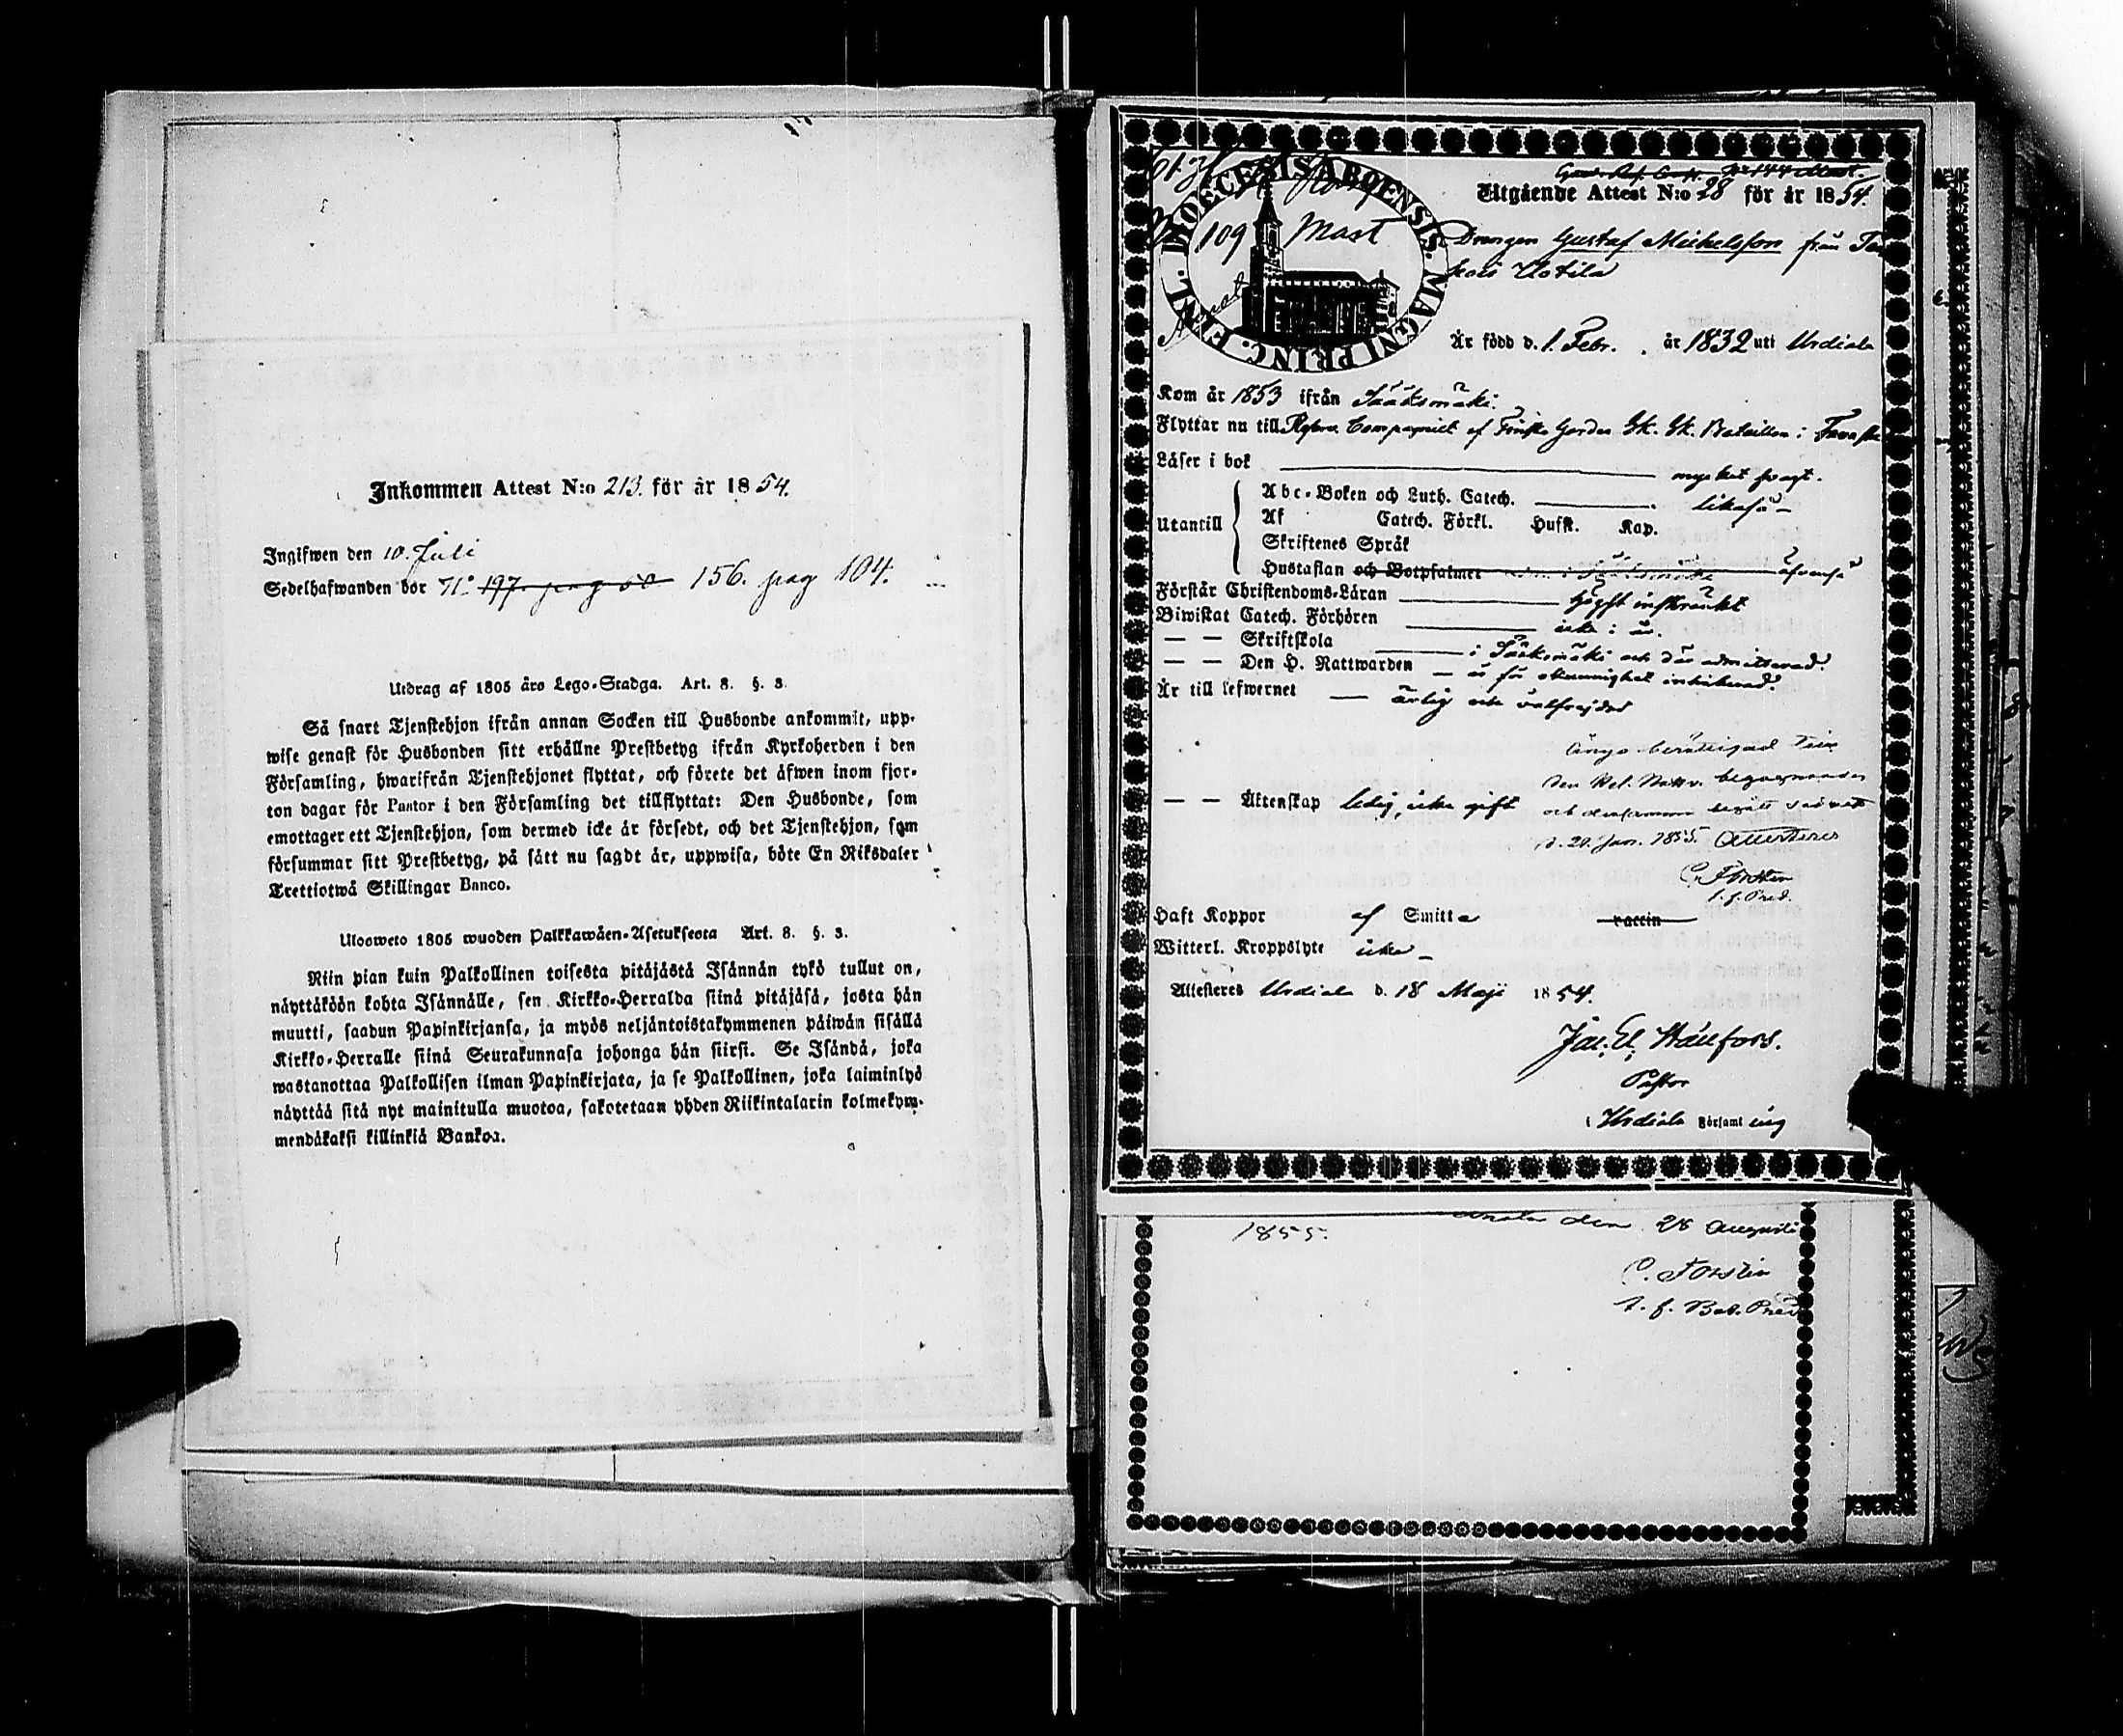 Inkommen Attest N:o 213. för år 1854.
Ingifwen den 10. Juli
Sedelhafwanden bor N:o 197 pag 50 156. pag 104.
Utdrag af 1805 års Lego-Stadga. Art. 8. §. 3.
Så snart Tjenstehjon ifrån annan Socken till Husbonde ankommit, upp-
wise genast för Husbonden sitt erhållne Prestbetyg ifrån Kyrkoherden i den
Församling, hwarifrån Tjenstehjonet flyttat, och förete det äfwen inom fjor-
ton dagar för Pastor i den Församling det tillflyttat: Den Husbonde, som
emottager ett Tjenstehjon, som dermed icke är försedt, och det Tjenstehjon, som
försummar sitt Prestbetyg, på sätt nu sagdt är, uppwisa, böte En Riksdaler
Trettiotwå Skillingar Banco.
Ulosweto 1805 wuoden Palkkawäen-Asetuksesta Art. 8. §. 3.
Niin pian kuin Palkollinen toisesta pitäjästä Isännän tykö tullut on,
näyttäköön kohta Isännälle, sen Kirkko-Herralda siinä pitäjäsä, josta hän
muutti, saadun Papinkirjansa, ja myös neljäntoistakymmenen päiwän sisällä
Kirkko-Herralle siinä Seurakunnasa johonga hän siirsi. Se Isändä, joka
wastanottaa Palkollisen ilman Papinkirjata, ja se Palkollinen, joka laiminlyö
näyttää sitä nyt mainitulla muotoa, sakotetaan yhden Riikintalarin kolmekym-
mendäkaksi killinkiä Bankoa.
DIOECESIS ABOENSIS. MAGNI PRINC. FINL.
109 Mast
Utgående Attest N:o 28 för år 1854.
Drengen Gustaf Michelsson från
Uotila
Är född d. 1. Febr. år 1832 uti Urdiala
Kom år 1853 ifrån Sääksmäki.
Flyttar nu till Reserv Compagniet af Finska Gardes Sk. Sk. Bataillon i Tavaste
Läser i bok mycket svagt.
Utantill
Abc-Boken och Luth. Catech. likaså
Af Catech. Förkl. Hufst. Kap.
Skriftenes Språk
Hustaflan och Botpsalmer äfvenså
Förstår Christendoms-Läran högst inskränkt
Biwistat Catech. Förhören icke i år.
— — Skriftskola i Sääksmäki och där admitterad.
— — Den H. Nattwarden
Är till lefwernet ärlig och välfrejdad
— — Äktenskap ledig, icke gift
d. 20. Jan. 1855. Attesteras
C. Forstén
Haft Koppor af Smitta vaccin
Witterl. Kroppslyte icke
Attesteres Urdiala d. 18 Maji 1854.
Jac. El. Hällfors.
Pastor
i Urdiala Församling
den 28 Augusti
1855.
C. Forstén
t. f. Bat. Pred